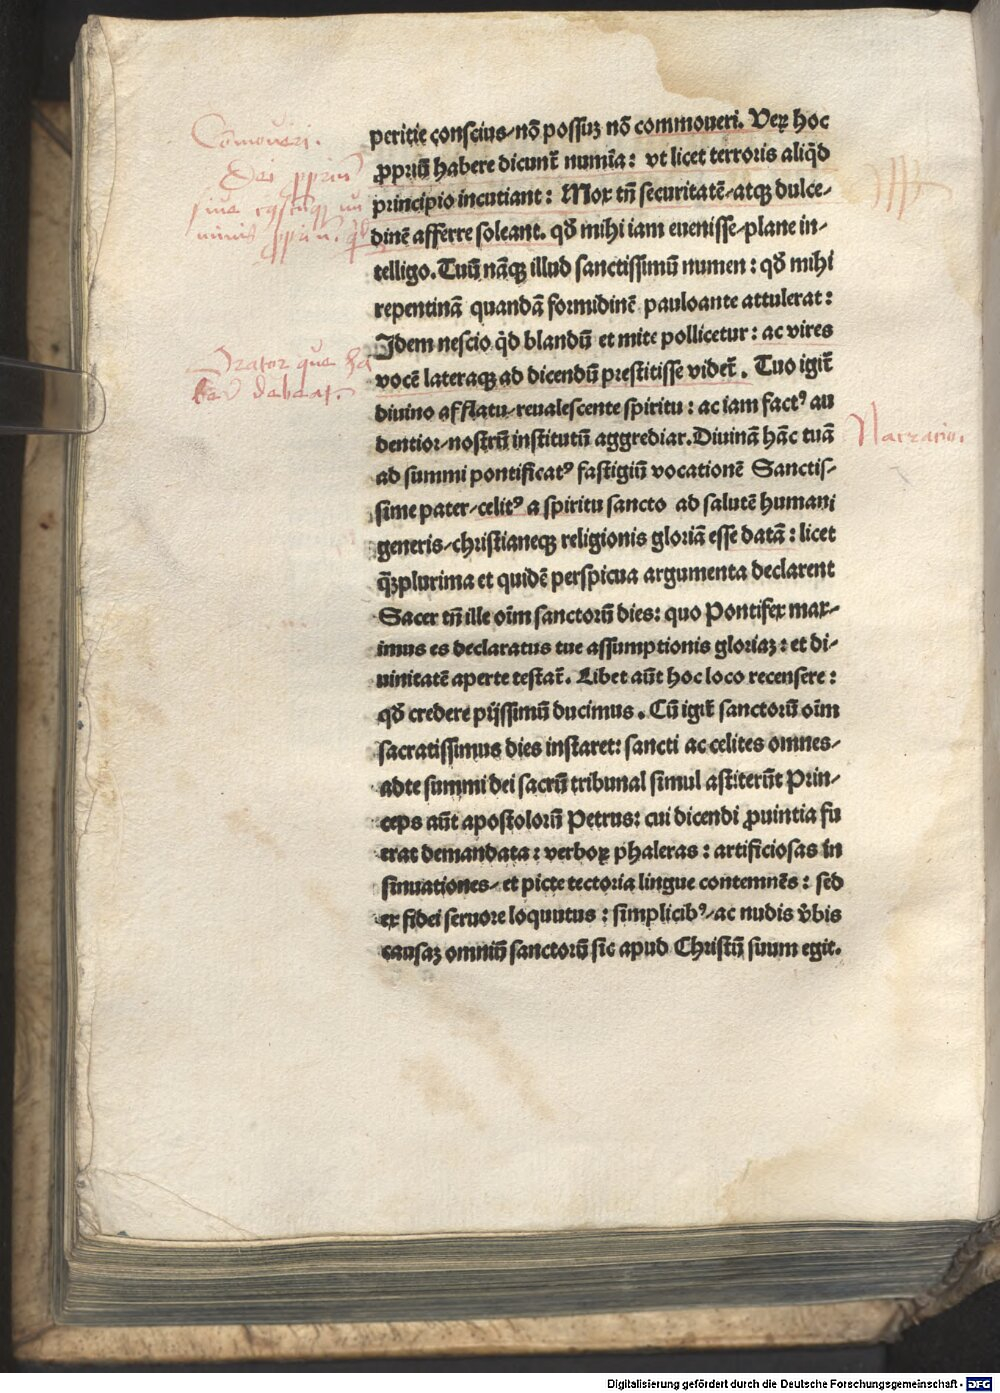 peritie conscius/nō possuꝫ nō commoueri. Veꝝ hoc
ꝓpriū habere dicunt̃ numīa: vt licet terroris aliq̇d
principio incutiant: Mox tñ securitatē/atqꝫ dulce/
dinē afferre soleant. qđ mihi iam euenisse/plane in/
telligo. Tuū nāqꝫ illud sanctissimū numen: qđ mihi
repentinā quandā formidinē pauloante attulerat:
Idem nescio q̇d blandū et mite pollicetur: ac vires
vocē lateraqꝫ ad dicendū prestitisse videt̃. Tuo igit̃
diuino afflatu/reualescente spiritu: ac iam factꝰ au
dentior/nostrū institutū aggrediar. Diuinā hāc tuā
ad summi pontificatꝰ fastigiū vocationē Sanctis/
sime pater/celitꝰ a spiritu sancto ad salutē humani
generis/christianeqꝫ religionis gloriā esse datā: licet
q̄ꝫplurima et quidē perspicua argumenta declarent
Sacer tñ ille oīm sanctorū dies: quo Pontifex max/
imus es declaratus tue assumptionis gloriaꝫ: et di/
uinitatē aperte testat̃. Libet aūt hoc loco recensere:
qđ credere pijssimū ducimus. Cū igit̃ sanctorū oīm
sacratissimus dies instaret: sancti ac celites omnes/
adte summi dei sacrū tribunal simul astiterūt Prin/
ceps aūt apostolorū Petrus: cui dicendi ꝓuintia fu
erat demandata: verboꝝ phaleras: artificiosas in
sinuationes/et picte tectoria lingue contemnēs: sed
ex fidei feruore loquutus: simplicibꝰ/ac nudis v̄bis
causaꝫ omniū sanctorū sic apud Christū suum egit.
Cōmoueri.
Dei ꝓpriū
siue
numinis ꝓpriū.
Orator que ha
debeat.
Narratio.
Digitalisierung gefördert durch die Deutsche Forschungsgemeinschaft - DFG